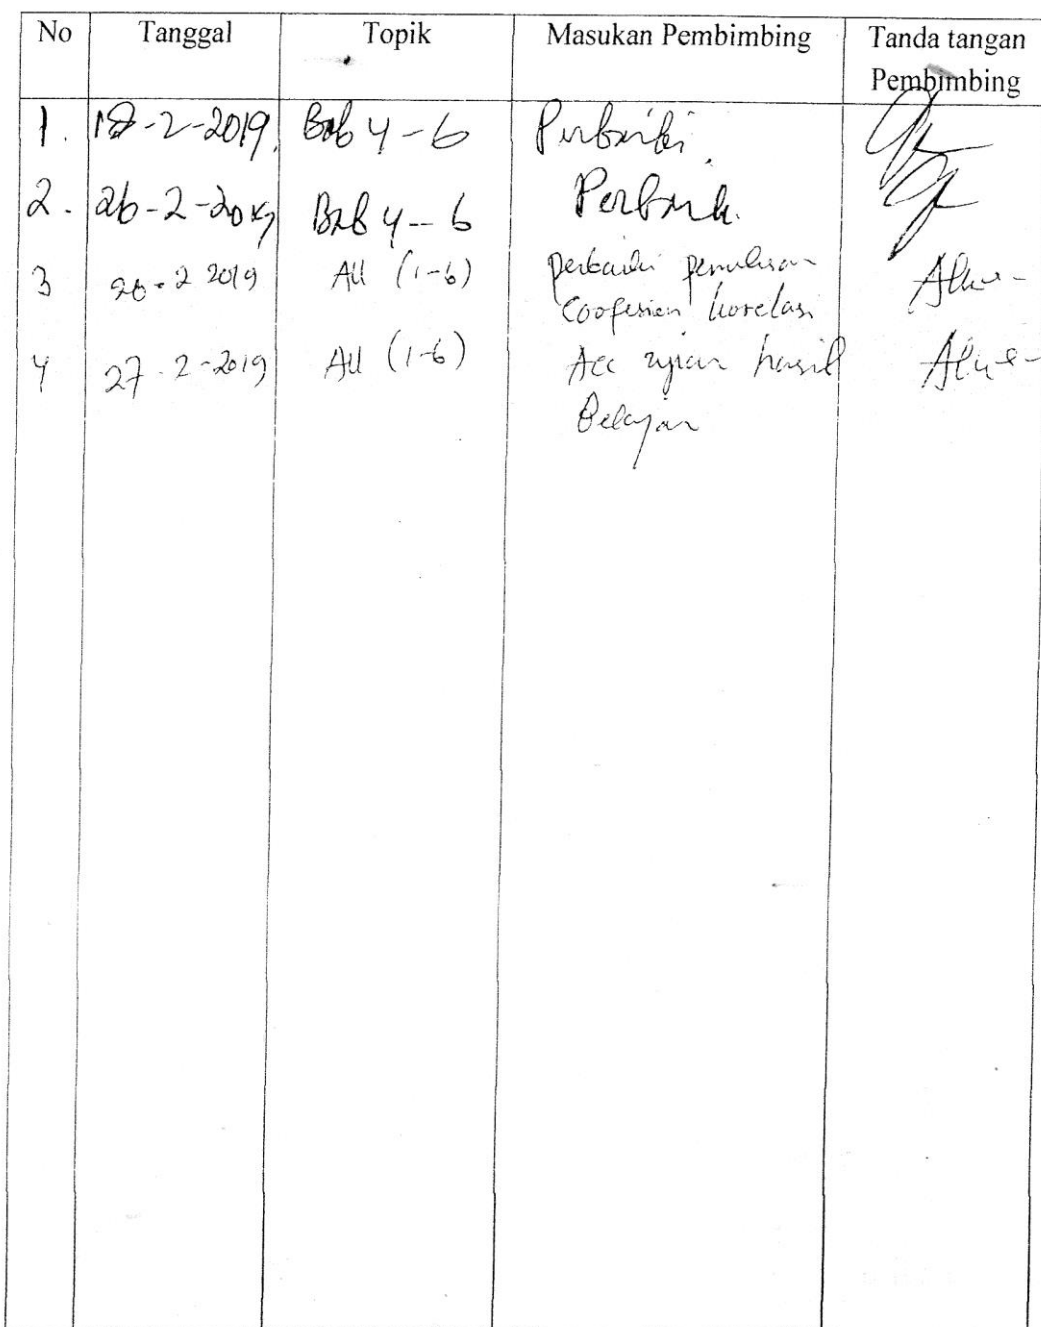 No Tanggal Topik Masukan Pembimbing Tanda tangan
Pembimbing
1. 18-2-2019. Bab 4-6 Perbaiki.
2. 26-2-2019 Bab 4-6 Perbaiki.
3 26-2 2019 All (1-6) perbaiki penulisan
Coofesien korelasi
4 27-2-2019 All (1-6) Acc ujian hasil
Belajar